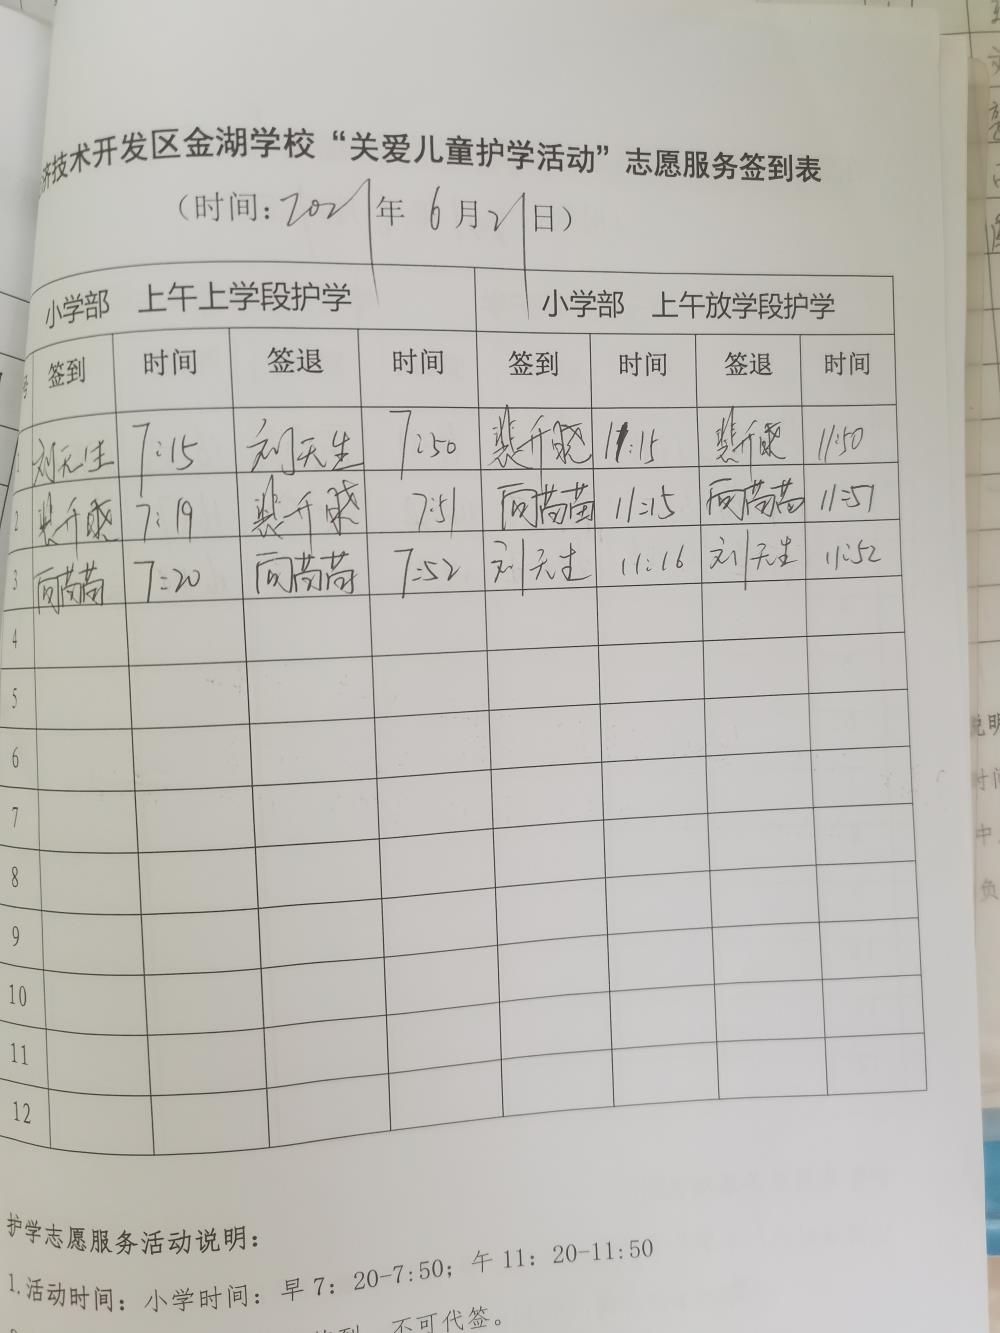 济技术开发区金湖学校“关爱儿童护学活动”志愿服务签到表
（时间：2021年 6月21日）
小学部 上午上学段护学 小学部 上午放学段护学
号 签到 时间 签退 时间 签到 时间 签退 时间
1 刘天生 7:15 刘天生 7:50 裴千晓 11:15 裴千晓 11:50
2 裴千晓 7:19 裴千晓 7:51 向苗苗 11:15 向苗苗 11:51
3 向苗苗 7:20 向苗苗 7:52 刘天生 11:16 刘天生 11:52
4
5
6
7
8
9
10
11
12
护学志愿服务活动说明：
1.活动时间：小学时间：早7：20-7:50；午11：20-11:50
签到，不可代签。
说明
时间
中
负